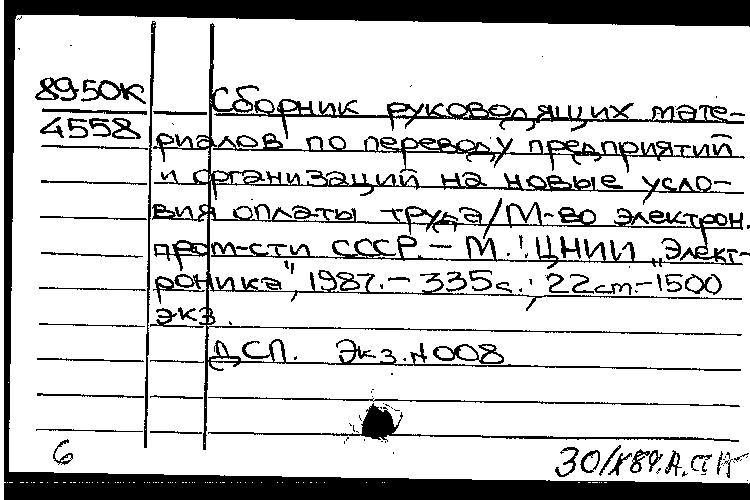 8950к Сборник руководящих мате-
4558 риалов по переводу предприятий
и организаций на новые усло-
вия оплаты труда/М-во электрон.
пром-сти СССР. - М.: ЦНИИ „Элект-
роника", 1987. - 335с.; 22см - 1500
экз.
ДСП. Экз. N 008
6 30/X 89.